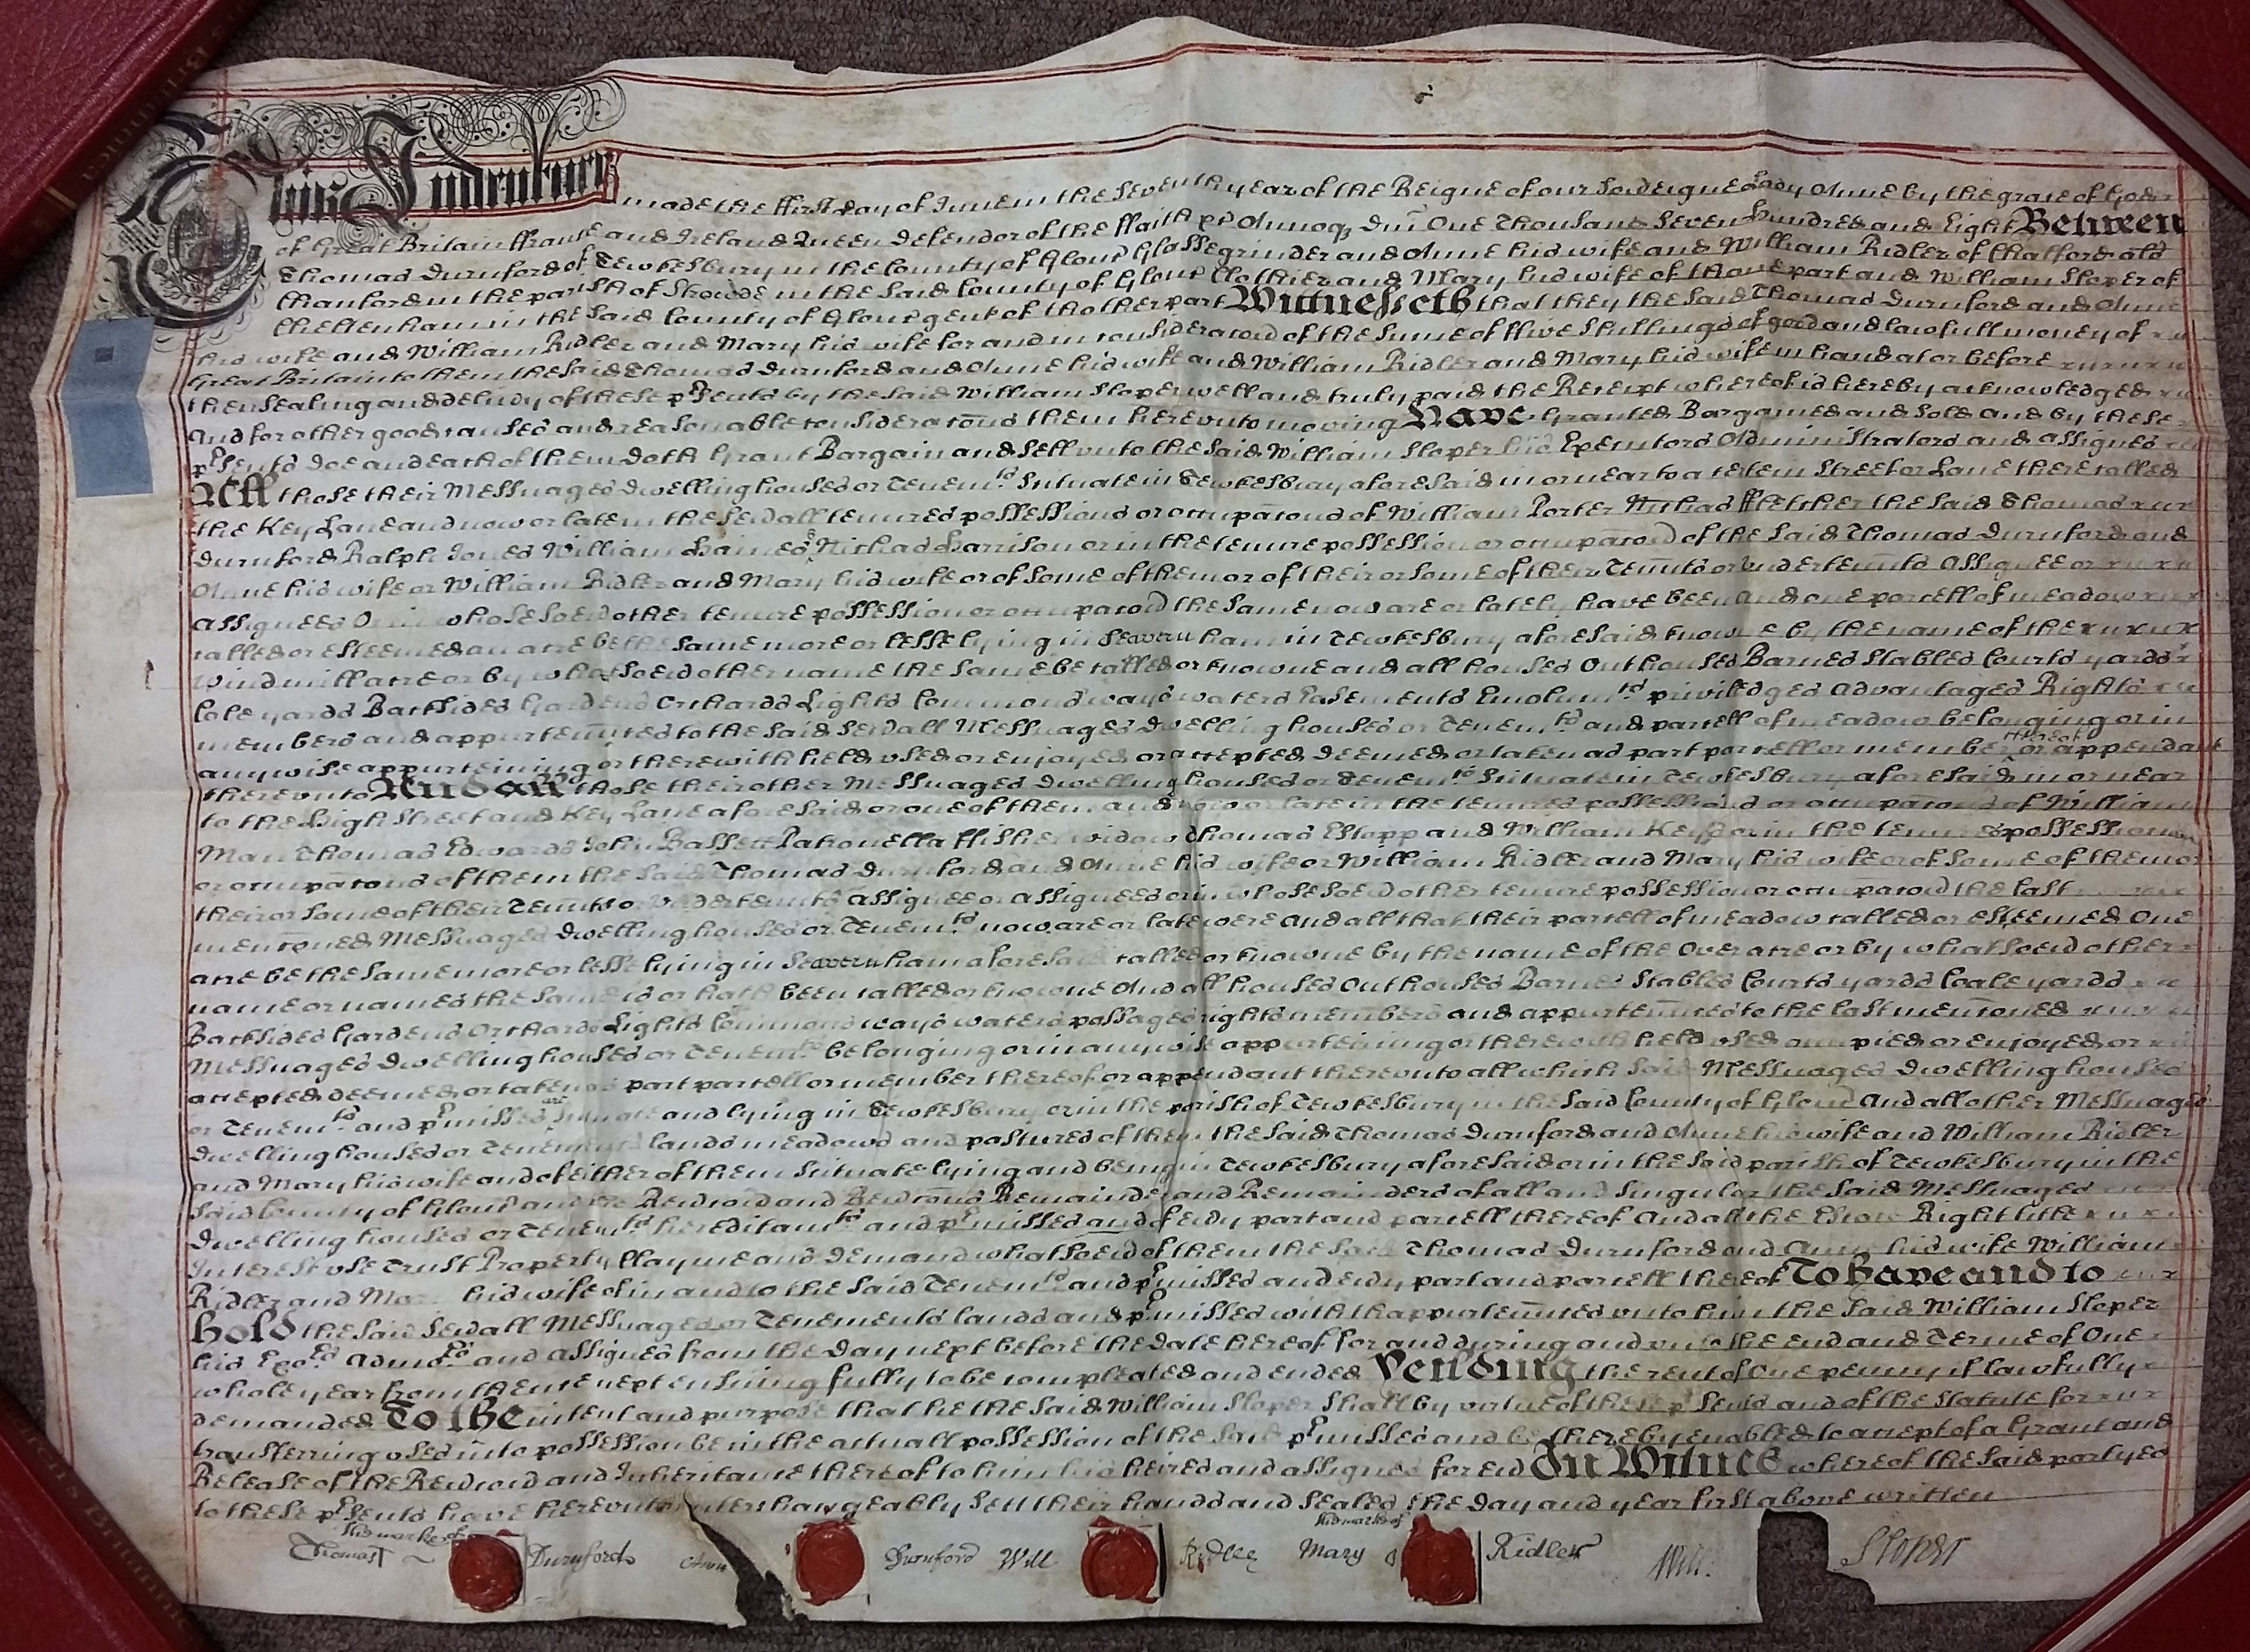 This Indenture made the ffirst day of June in the Seventh year of the Reigne of our Soveraigne Lady Anne by the grace of God
of Great Britain ffrance and Ireland Queen Defendor of the ffaith &c Annoq Dni One Thousand Seven hundred and Eight Between
Thomas Durnford of Tewkesbury in the County of Glouc Glassegrinder and Anne his wife and William Ridler of Chalford als
Chanford in the parish of in the said County of Glouc Clothier and Mary his wife of thone part and William Sloper of
Cheltenham in the said County of Glouc gent of thother part Witnesseth that they the said Thomas Durnford and Anne
his wife and William Ridler and Mary his wife for and in consideracon of the Sume of ffive Shillings of good and lawfull money of
Great Britain to them the said Thomas Durnford and Anne his wife and William Ridler and Mary his wife in hand at or before
thensealing and delivy of these psents by the said William Sloper well and truly paid the Receipt whereof is hereby acknowledged
And for other good causes and reasonable consideracons them herevnto moving Have Granted Bargained and Sold and by these
psents doe and each of them doth Grant Bargain and Sell vnto the said William Sloper his Executors Administrators and assignes
All those their Messuages dwelling houses or Tenemts Situate in Tewkesbury aforesaid in or near to a certein Street or Lane there called
the Key Lane and now or late in the sevall tenures possessions or occupacons of William Porter Nichas ffletcher the said Thomas
Durnford Ralph Jones William Haines Nichas Harrison or in the tenure possession or occupacon of the said Thomas Durnford and
Anne his wife or William Ridler and Mary his wife or of some of them or of their or some of their Tennts or vndertennts Assignee or
assignees Or in whose soevr other tenure possession or occupacon the same now are or lately have been And one parcell of meadow
called or esteemed an acre be the same more or lesse lying in Seavern ham in Tewkesbury aforesaid knowne by the name of the
Windmill acre or by whatsoevr other name the same be called or knowne and all houses Outhouses Barnes Stables Courts yards
Cole yards Backsides Gardens Orchards Lights Commons ways waters Easements Emolumts priviledges Advantages Rights
members and appurtennces to the said sevall Messuages dwelling houses or Tenemts and parcell of meadow belonging or in
anywise apperteining or therewith held vsed or enjoyed or accepted deemed or taken as part parcell or member thereof or appendant
therevnto And all those their other Messuages dwelling houses or Tenemts Situate in Tewkesbury aforesaid in or near
to the High Street and Key Lane aforesaid or one of them and now or late in the tenures possessions or occupacons of William
Man Thomas Edwards John Bassett ffisher widow Thomas Estopp and William or in the tenures possessions
or occupacons of them the said Thomas Durnford and Anne his wife or William Ridler and Mary his wife or of some of them or
their or some of their Tennts or vndertennts assignee or assignees or in whose soevr other tenure possession or occupacon the last
menconed Messuages dwelling houses or Tenemts now are or late were And all that their parcell of meadow called or esteemed One
acre be the same more or lesse lying in Seavern ham aforesaid called or knowne by the name of the Over acre or by whatsoevr other
name or names the same is or hath been called or knowne And all houses Outhouses Barnes Stables Courts yards Coale yards
Backsides Gardens Orchards Lights Commons ways waters passages rights members and appurtennces to the last menconed
Messuages dwelling houses or Tenemts belonging or in anywise apperteining or therewith held vsed occupied or enjoyed or
accepted deemed or taken as part parcell or member thereof or appendant therevnto all which said Messuages dwelling houses
or Tenemts and pmisses are situate and lying in Tewkesbury or in the parish of Tewkesbury in the said County of Glouc And all other Messuages
dwelling houses or Tenements lands meadows and pastures of them the said Thomas Durnford and Anne his wife and William Ridler
and Mary his wife and of either of them Situate lying and being in Tewkesbury aforesaid or in the said parish of Tewkesbury in the
said County of Glouc and the Revrcon and Revrcons Remainder and Remainders of all and Singular the said Messuages
dwelling houses or Tenemts hereditamts and pmisses and of evy part and parcell thereof And all the Estate Right title
Interest vse Trust Property Clayme and demand whatsoevr of them the said Thomas Durnford and Anne his wife William
Ridler and Mary his wife of in and to the said Tenemts and pmisses and evy part and parcell thereof To have and to
hold the said sevall Messuages or Tenements lands and pmisses with thappurtennces vnto him the said William Sloper
his Exors Admors and assignes from the day next before the date hereof for and during and vnto the end and Terme of One
whole year from thence next ensuing fully to be compleated and ended Yeilding the rent of One penny if lawfully
demanded To the intent and purpose that he the said William Sloper shall by virtue of these psents and of the Statute for
transferring vses into possession be in the actuall possession of the said pmisses and be thereby enabled to accept of a Grant and
Release of the Revrcon and Inheritance thereof to him his heires and assignes for evr In Witness whereof the said partyes
to these psents have herevnto interchangeably sett their hands and seales the day and year first above written
this marke of Thomas T Durnford Ann Durnford Will Ridler this marke of Mary Ridler Will: Sloper